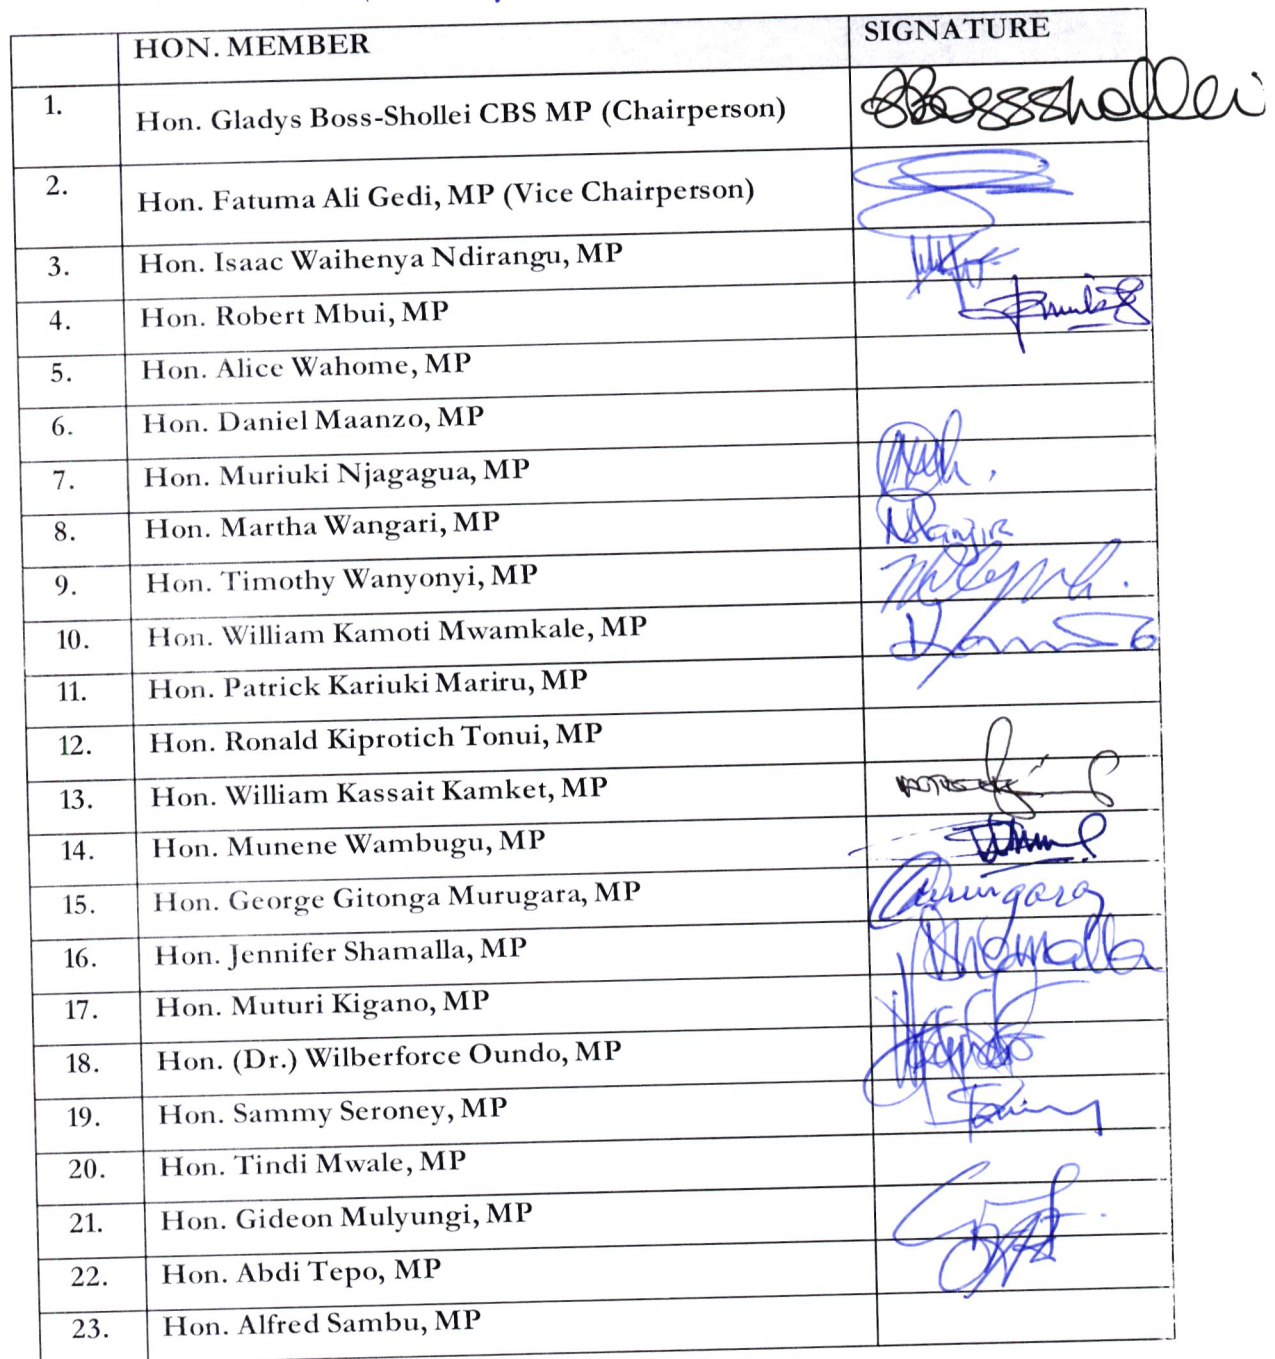 HON. MEMBER SIGNATURE
1. Hon. Gladys Boss-Shollei CBS MP (Chairperson) GBossshollei
2. Hon. Fatuma Ali Gedi, MP (Vice Chairperson)
3. Hon. Isaac Waihenya Ndirangu, MP
4. Hon. Robert Mbui, MP
5. Hon. Alice Wahome, MP
6. Hon. Daniel Maanzo, MP
7. Hon. Muriuki Njagagua, MP
8. Hon. Martha Wangari, MP
9. Hon. Timothy Wanyonyi, MP
10. Hon. William Kamoti Mwamkale, MP
11. Hon. Patrick Kariuki Mariru, MP
12. Hon. Ronald Kiprotich Tonui, MP
13. Hon. William Kassait Kamket, MP
14. Hon. Munene Wambugu, MP
15. Hon. George Gitonga Murugara, MP
16. Hon. Jennifer Shamalla, MP Shamalla
17. Hon. Muturi Kigano, MP
18. Hon. (Dr.) Wilberforce Oundo, MP
19. Hon. Sammy Seroney, MP
20. Hon. Tindi Mwale, MP
21. Hon. Gideon Mulyungi, MP
22. Hon. Abdi Tepo, MP
23. Hon. Alfred Sambu, MP